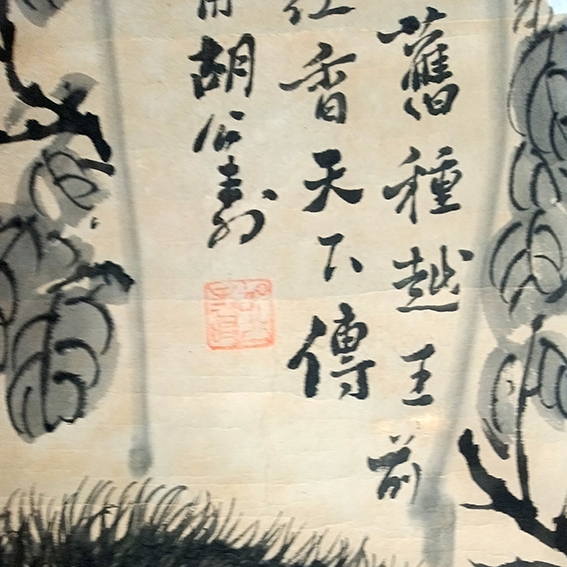 舊種越王前
香天下傳
胡公壽